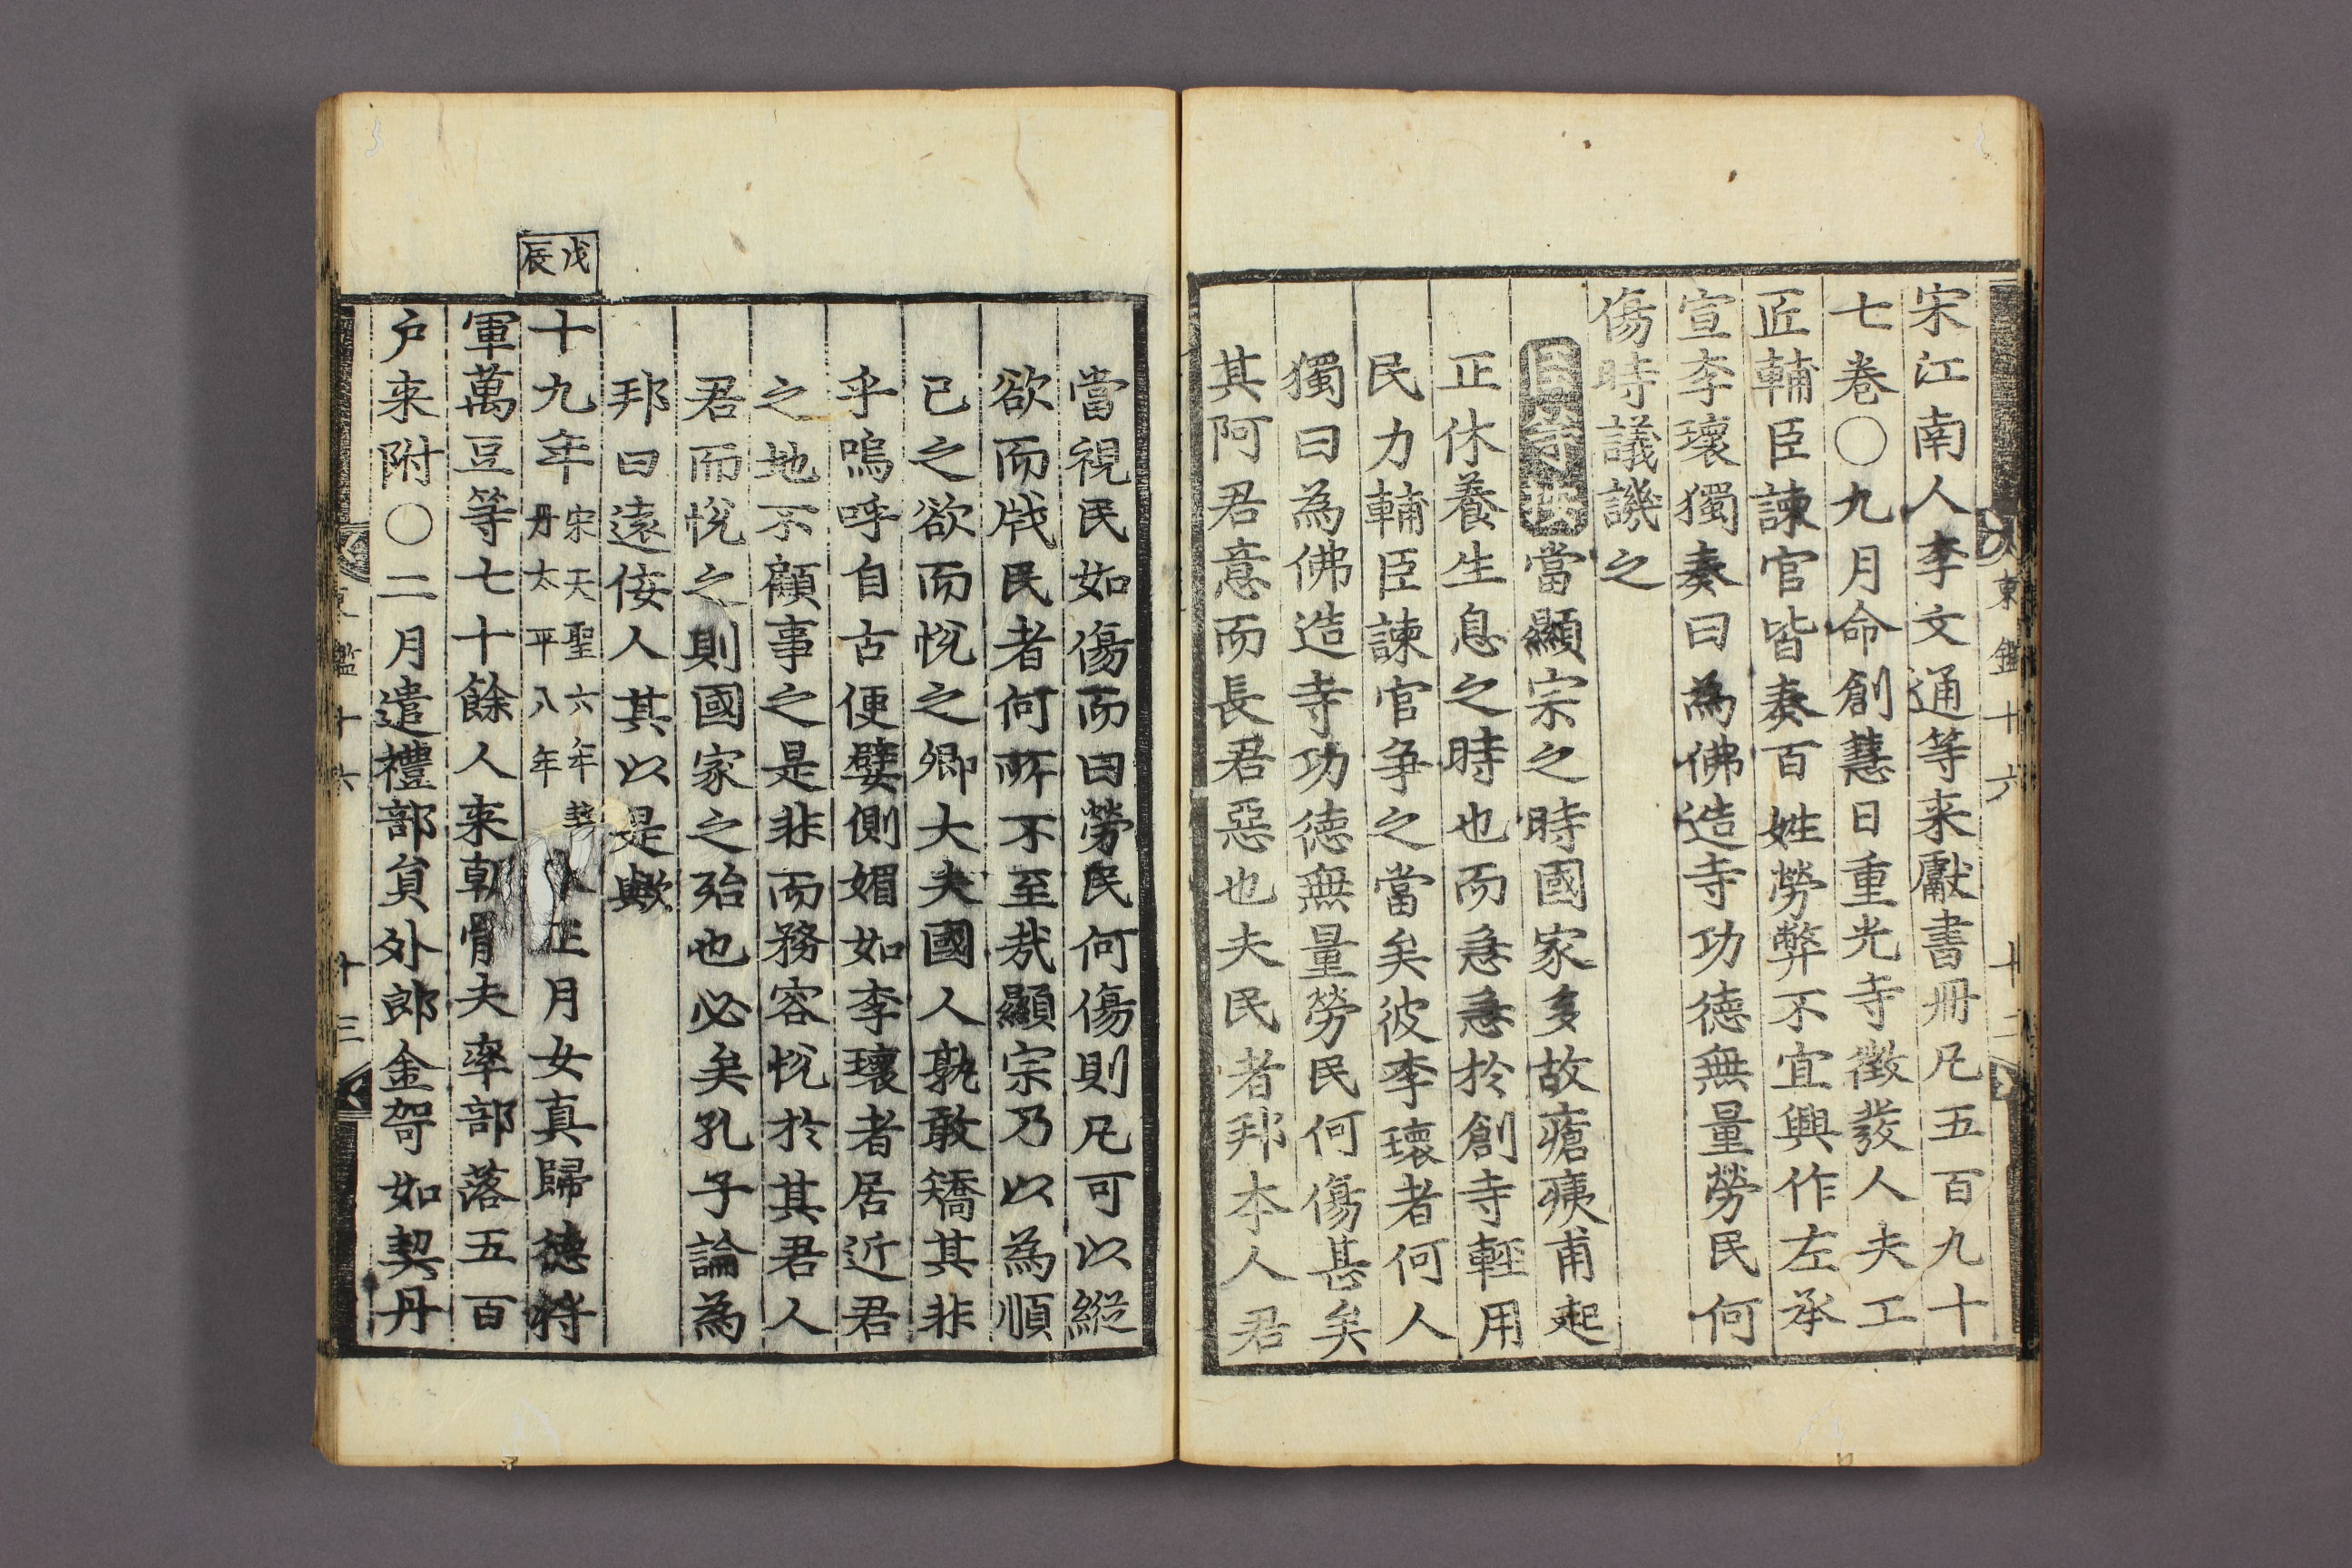 宋江南人李文通等来獻書冊凡五百九十
七卷○九月命創慧日重光寺徵發人夫工
匠輔臣諫官皆奏百姓勞弊不宜興作左承
宣李瓌獨奏曰為佛造寺功德無量勞民何
傷時議譏之
當顯宗之時國家多故瘡痍甫起
正休養生息之時也而急急於創寺輕用
民力輔臣諫官爭之當矣彼李瓌者何人
獨曰為佛造寺功德無量勞民何傷甚矣
其阿君意而長君惡也夫民者邦本人君
東鑑十六
十二
當視民如傷而曰勞民何傷則凡可以縱
欲而戕民者何所不至哉顯宗乃以為順
已之欲而悅之卿大夫國人孰敢矯其非
乎嗚呼自古便嬖側媚如李瓌者居近君
之地不顧事之是非而務容悅於其君人
君而悅之則國家之殆也必矣孔子論為
邦曰遠佞人其以是歟
戊辰
十九年宋天聖六年契丹太平八年正月女真歸德將
軍萬豆等七十餘人来朝骨夫率部落五百
户来附○二月遣禮部貟外郎金哿如契丹
鑑十六
十三